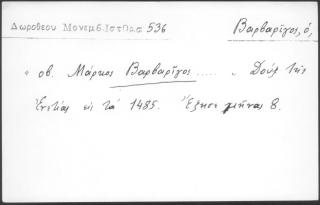 Δωροθεου Μονεμβ. Ιστορια 536
Βαρβαρῖγος, ὁ,
" οβ. Μάρκος Βαρβαρῖγος ..... " Δούξ τῆς
Ἐνετίας εἰς τά 1485. Ἔζησε μῆνας 8.